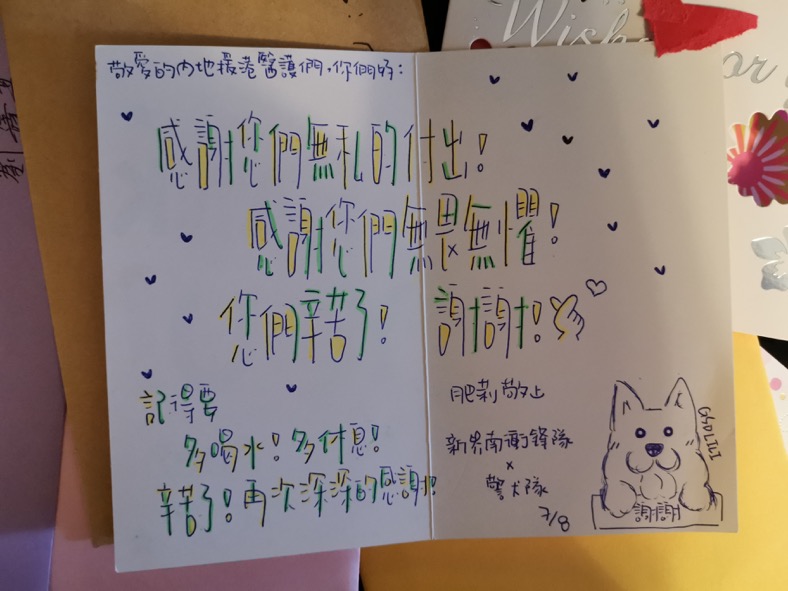 敬愛的內地援港醫護們，你們好：
感謝您們無私的付出！
感謝您們無畏無懼！
您們辛苦了！ 謝謝！
記得要
多喝水！多休息！
辛苦了！再次深深的感謝！
肥莉敬上
新界南衝鋒隊
×
警犬隊
7/8
GSD LILI
謝謝
Wish
or